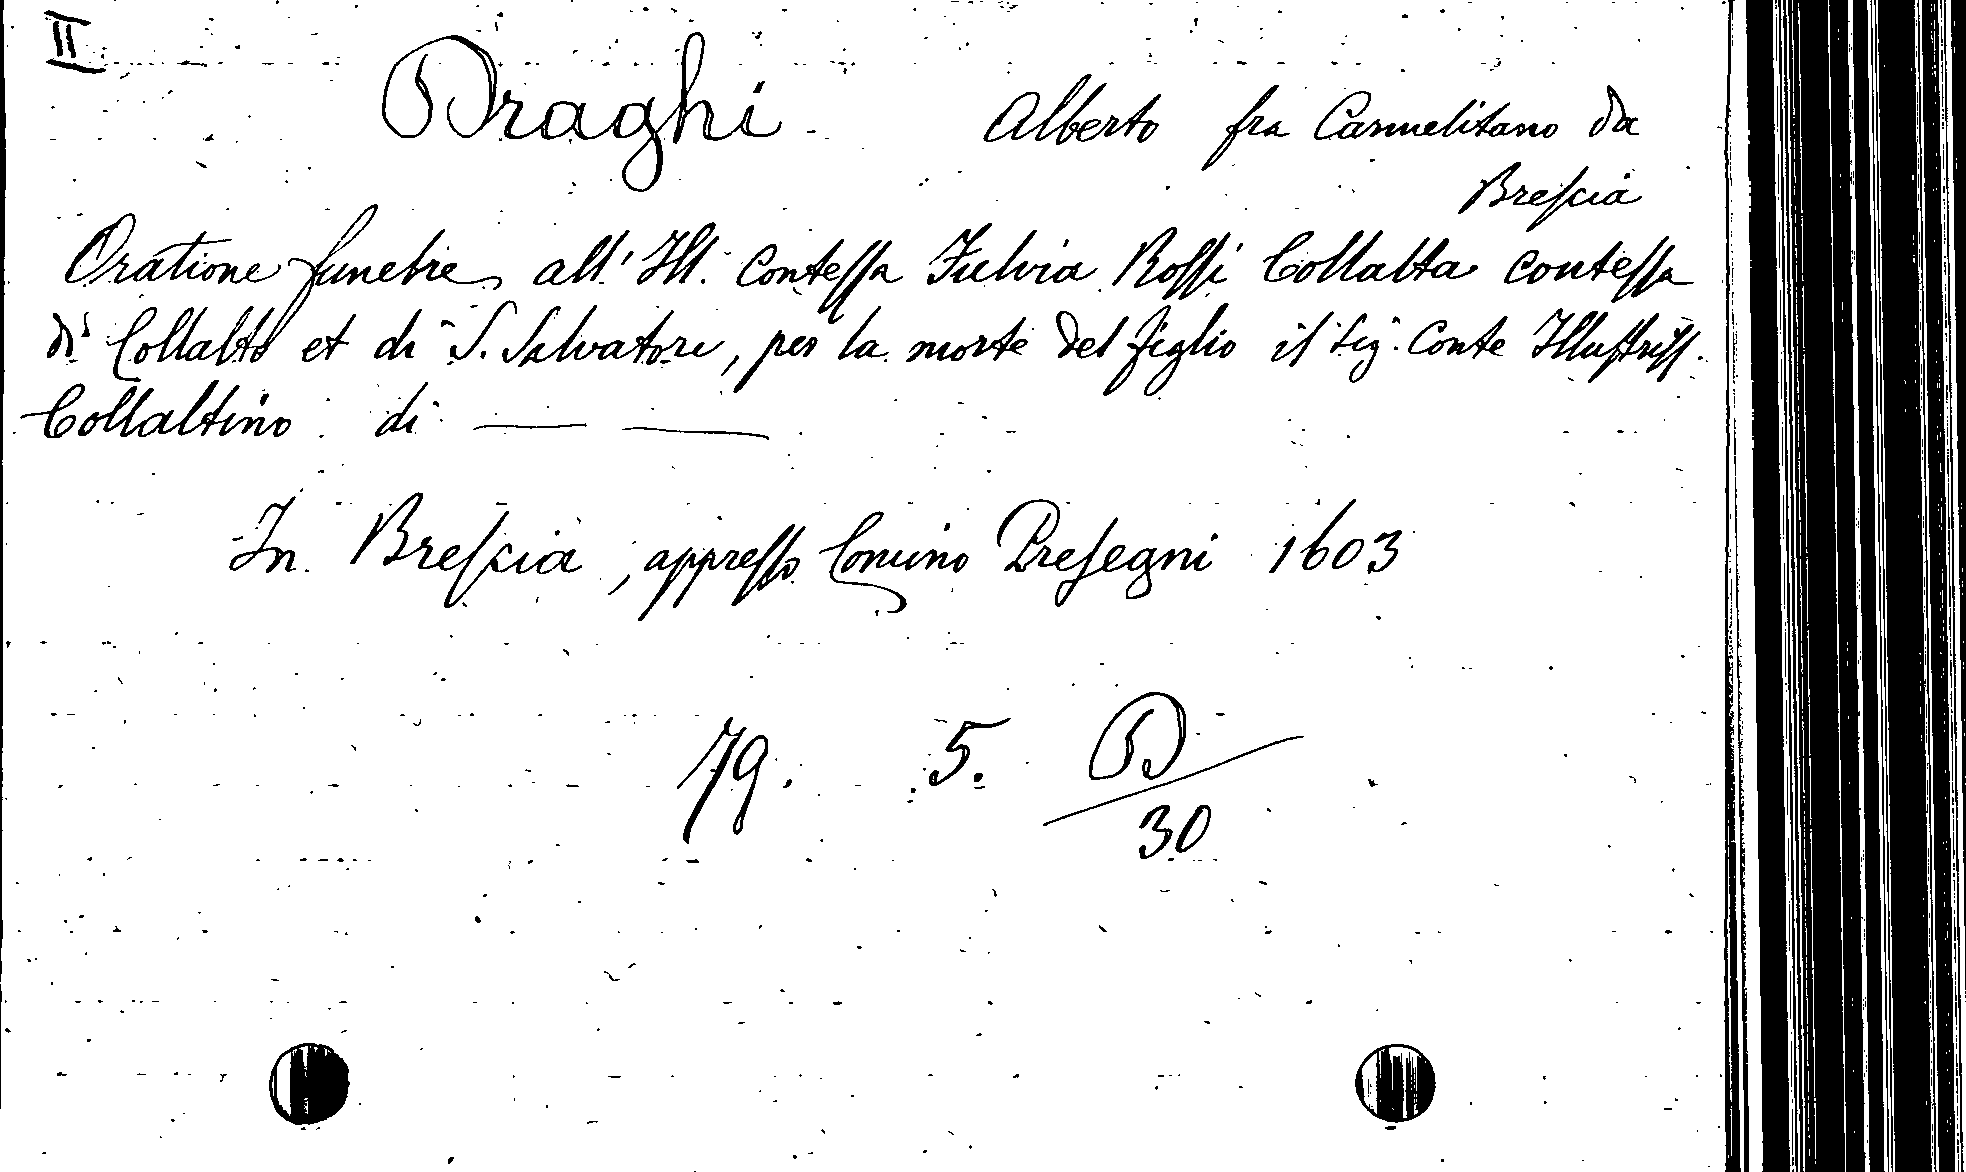 II
Draghi Alberto fra Carmelitano da
Brescia
Oratione funebre all' Ill. Contessa Fulvia Rossi Collalta contessa
di Collalto et di S. Salvatore, per la morte del figlio il Sig. Conte Illustriss.
Collaltino di — —
In Brescia, appresso Comino Presegni 1603
79. 5. D
30